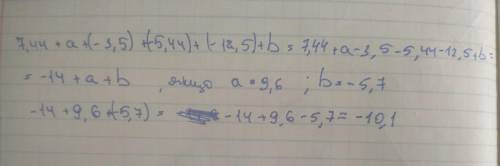 7,44 + a + (-3,5) + (-5,44) + (-12,5) + b = 7,44 + a - 3,5 - 5,44 - 12,5 + b =
= -14 + a + b , якщо a = 9,6 ; b = -5,7
-14 + 9,6 + (-5,7) = -14 + 9,6 - 5,7 = -10,1